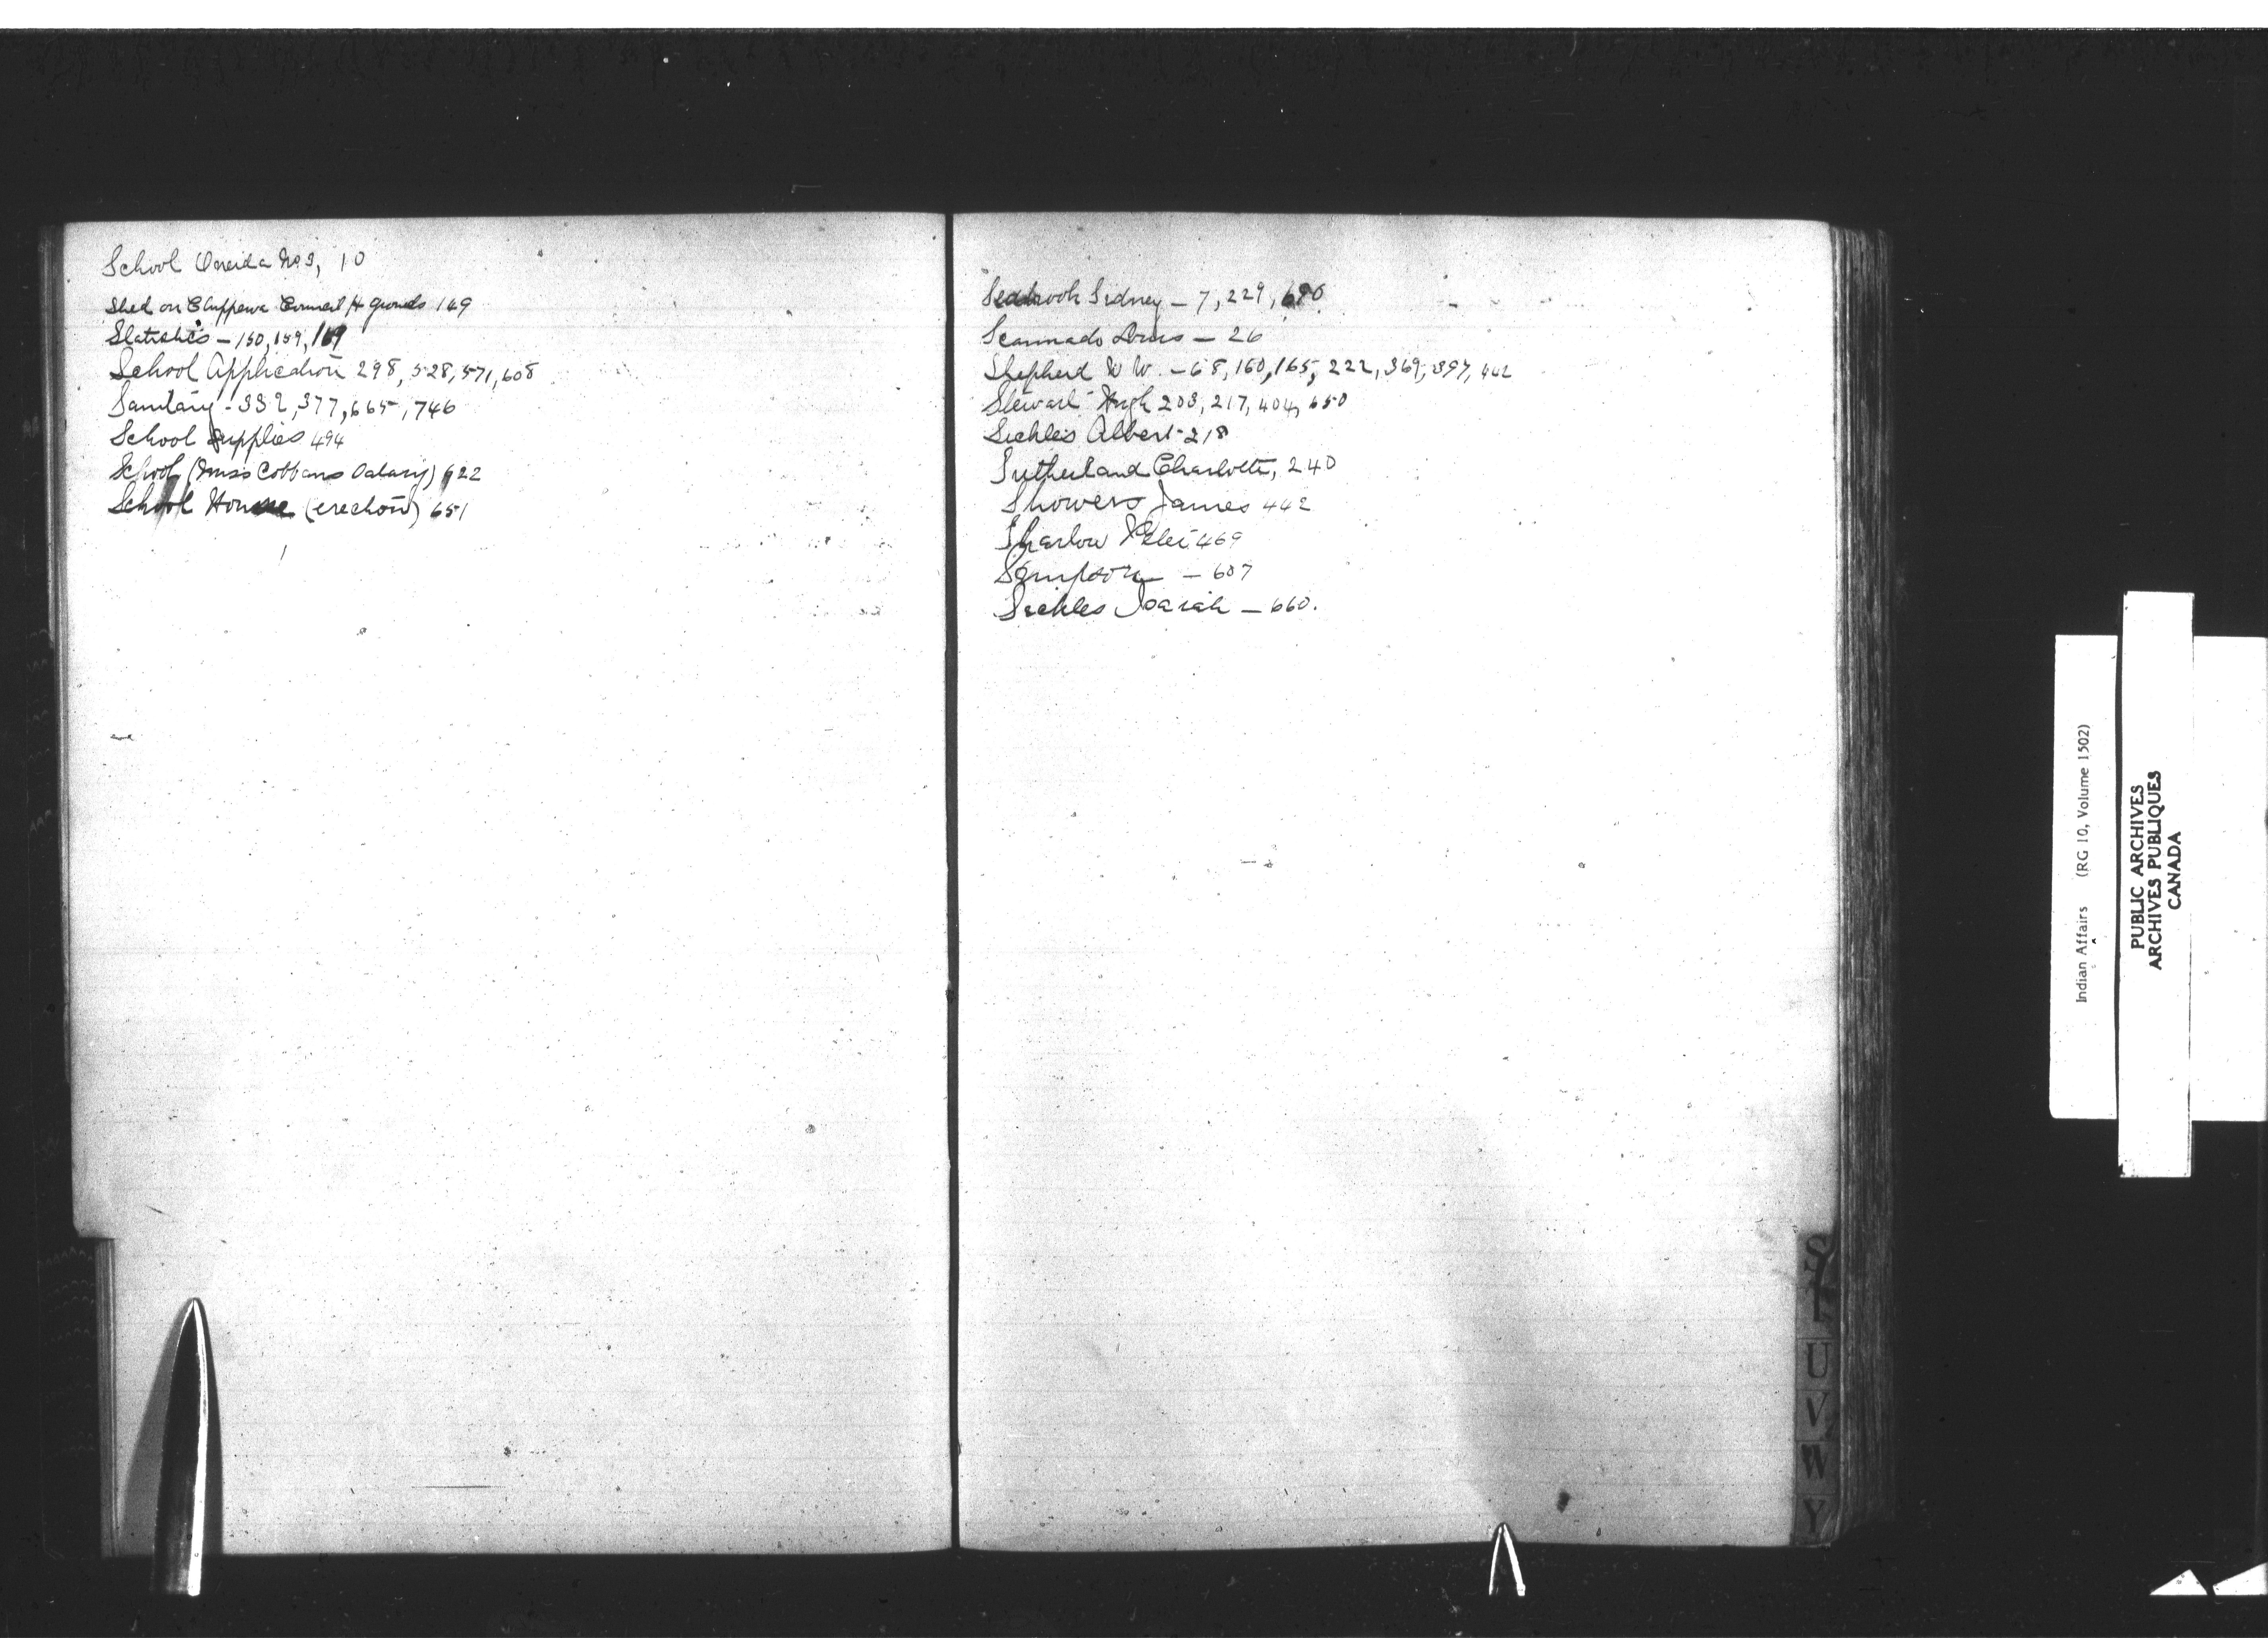 School Oneida No 3, 10
Shed on Chippewa Council H grounds 149
Statistics - 150, 159, 169
School Application 298, 528, 571, 608
Sanitary - 332, 377, 665, 746
School Supplies 494
School (Miss Cobbans Salary) 622
School House (erection) 651
Seabrook Sidney - 7, 229, 690
Scannado - 26
Shepherd W W. - 68, 160, 165, 222, 369, 397, 442
Stewart Hugh 203, 217, 404, 650
Sickles Albert - 218
Sutherland Charlotte, 240
Showers James 442
Sharlow Peter 469
Sampson - 607
Sickles Isaiah - 660.
S
T
U
V
W
Y
Indian Affairs (RG 10, Volume 1502)
PUBLIC ARCHIVES
ARCHIVES PUBLIQUES
CANADA